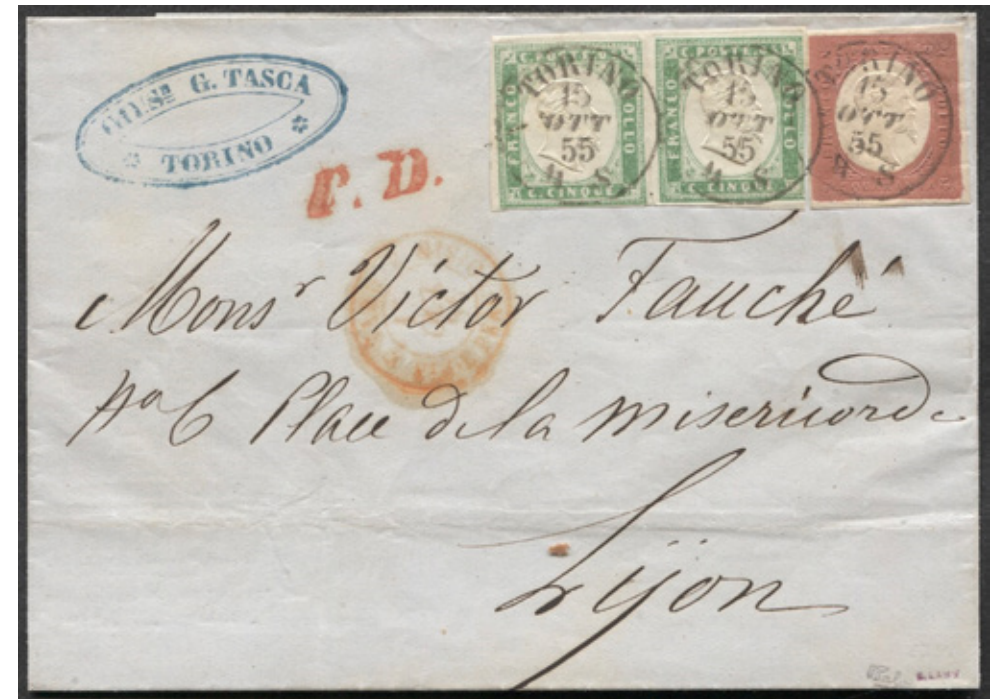 G. TASCA
TORINO
P. D.
C. POSTE
FRANCO
BOLLO
C. CINQUE
TORINO
15
OTT
55
S
M
C. POSTE
FRANCO
BOLLO
C. CINQUE
TORINO
15
OTT
55
S
M
TORINO
15
OTT
55
S
M
Monsr Victor Fauché
No 6 Place de la misericorde
Lÿon